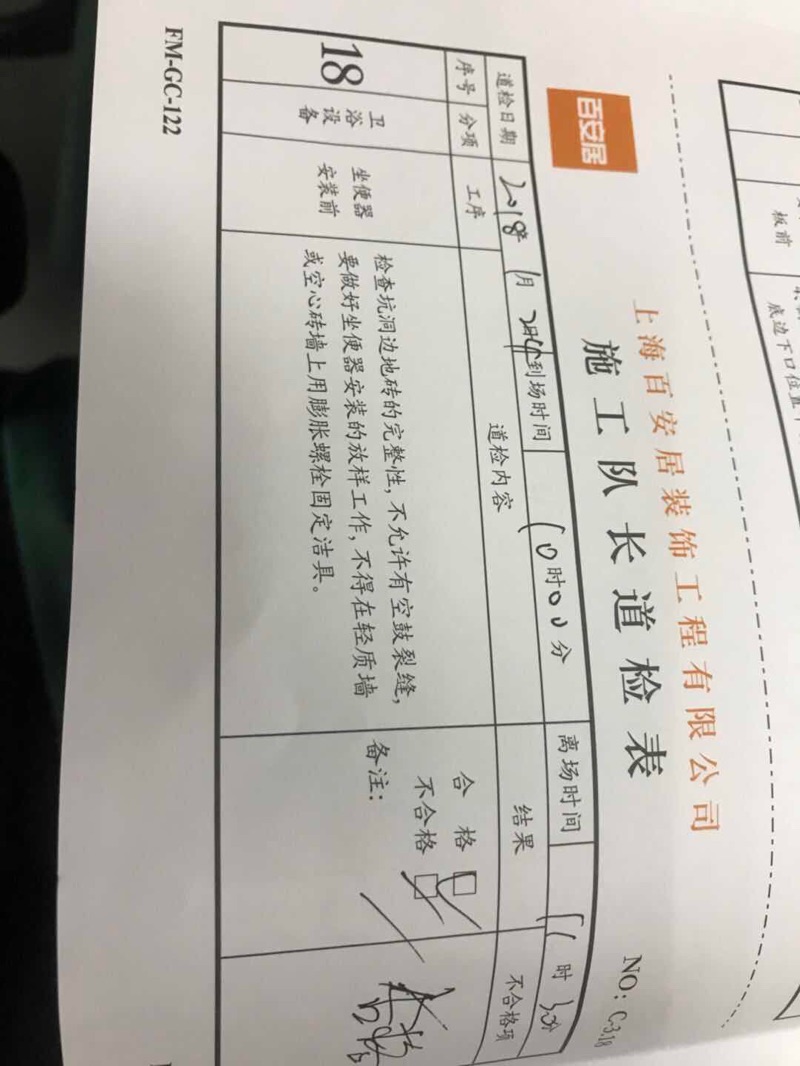 板前
底边下口位置
百安居
上海百安居装饰工程有限公司
施工队长道检表
NO: C-3.18
道检日期 2018年 1月 2 到场时间 10时00分 离场时间 11时30分
序号 分项 工序 道检内容 结果 不合格项
18 卫浴设备 坐便器安装前
检查坑洞边地砖的完整性，不允许有空鼓裂缝，
要做好坐便器安装的放样工作，不得在轻质墙
或空心砖墙上用膨胀螺栓固定洁具。
合 格 □
不合格 □
备注：
FM-GC-122